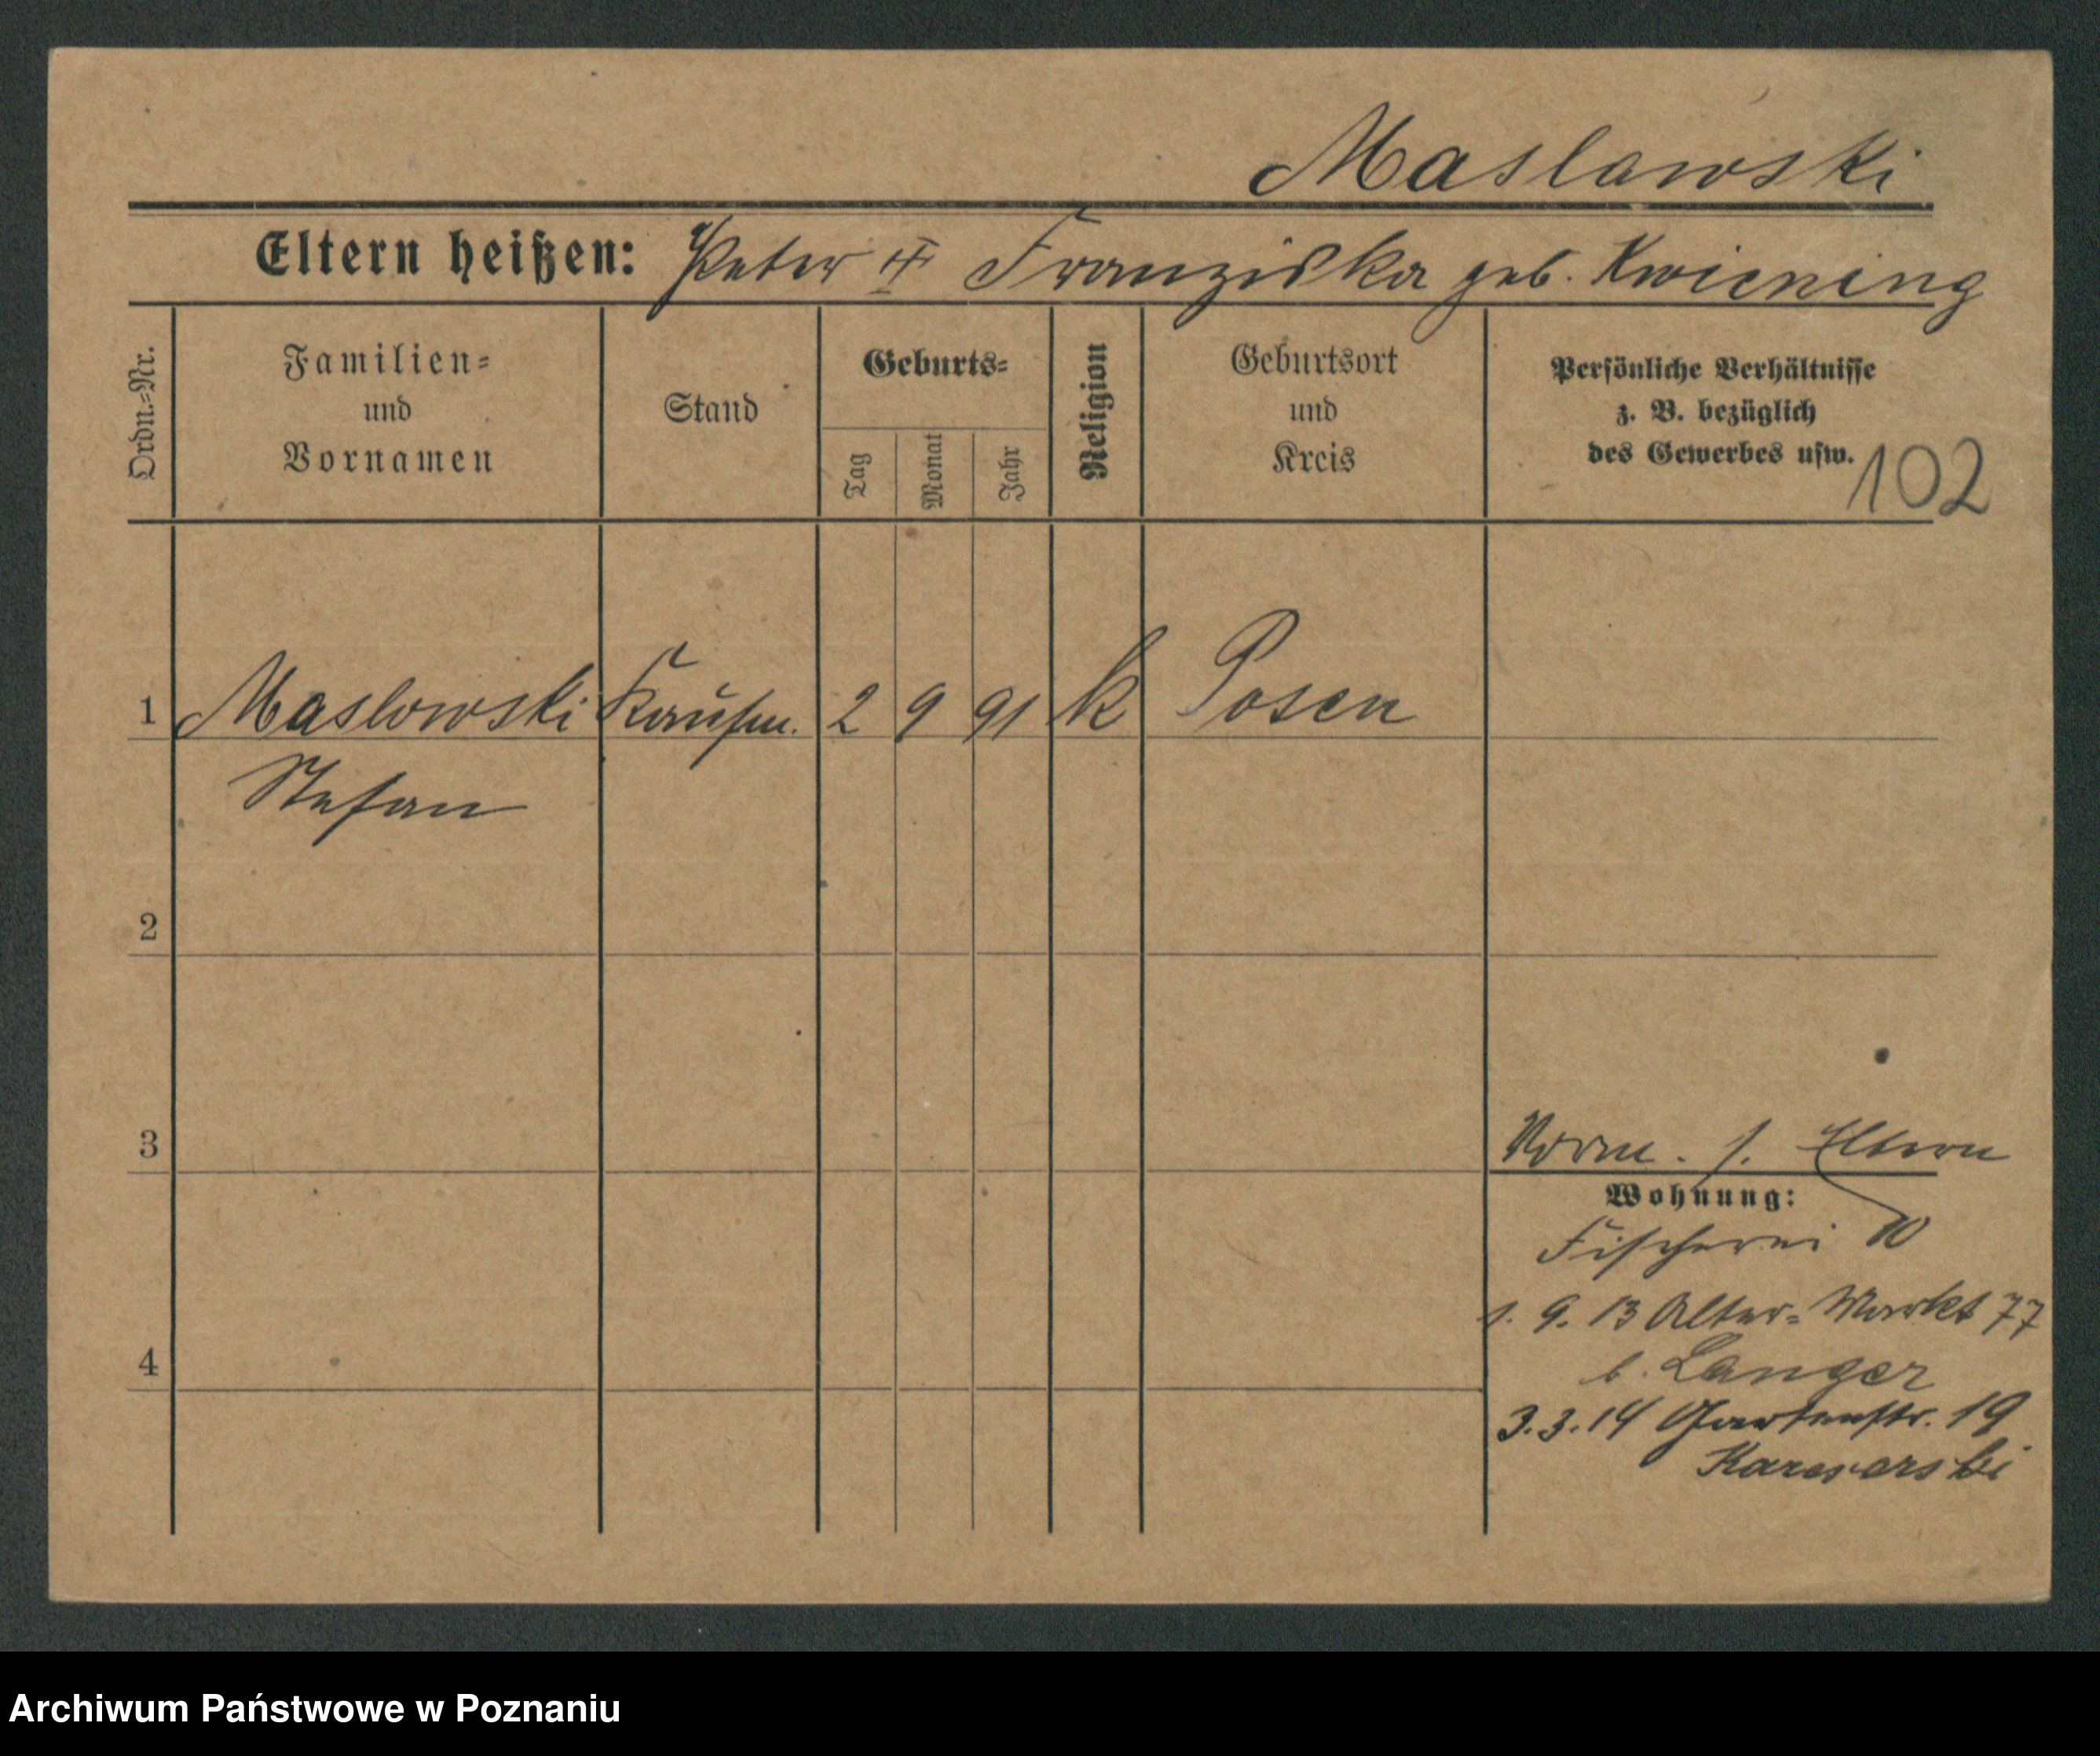 Maslowski
Eltern heißen: Peter Franziska geb. Kwiening
Ordn.=Nr.
Familien=
und
Vornamen
Stand
Geburts=
Tag
Monat
Jahr
Religion
Geburtsort
und
Kreis
Persönliche Verhältnisse
z. B. bezüglich
des Gewerbes usw.
102
1 Maslowski Kaufm. 2 9 91 k Posen
Stefan
2
3
4
Vorm. s. Eltern
Wohnung:
Fischerei 10
1. 9. 13 Alter=Markt 77
b. Langer
3.3.14 Gartenstr. 19
Archiwum Państwowe w Poznaniu